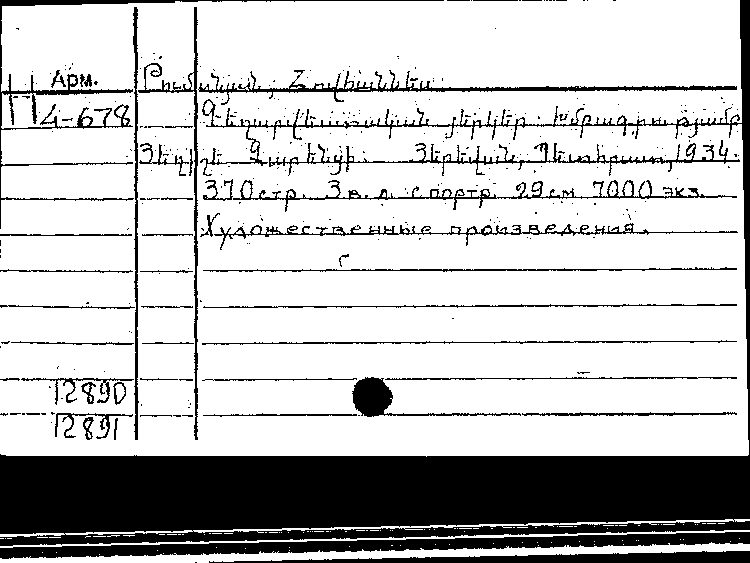 Арм.
Թումանյան, Հովհաննես
П 4-678
Գեղարվեստական յերկեր. Խմբագրությամբ
Յեղիշե Չարենցի. Յերեվան, Պետհրատ, 1934.
370 стр. 3 в. л. с портр. 29 см 7000 экз.
Художественные произведения.
12890
12891